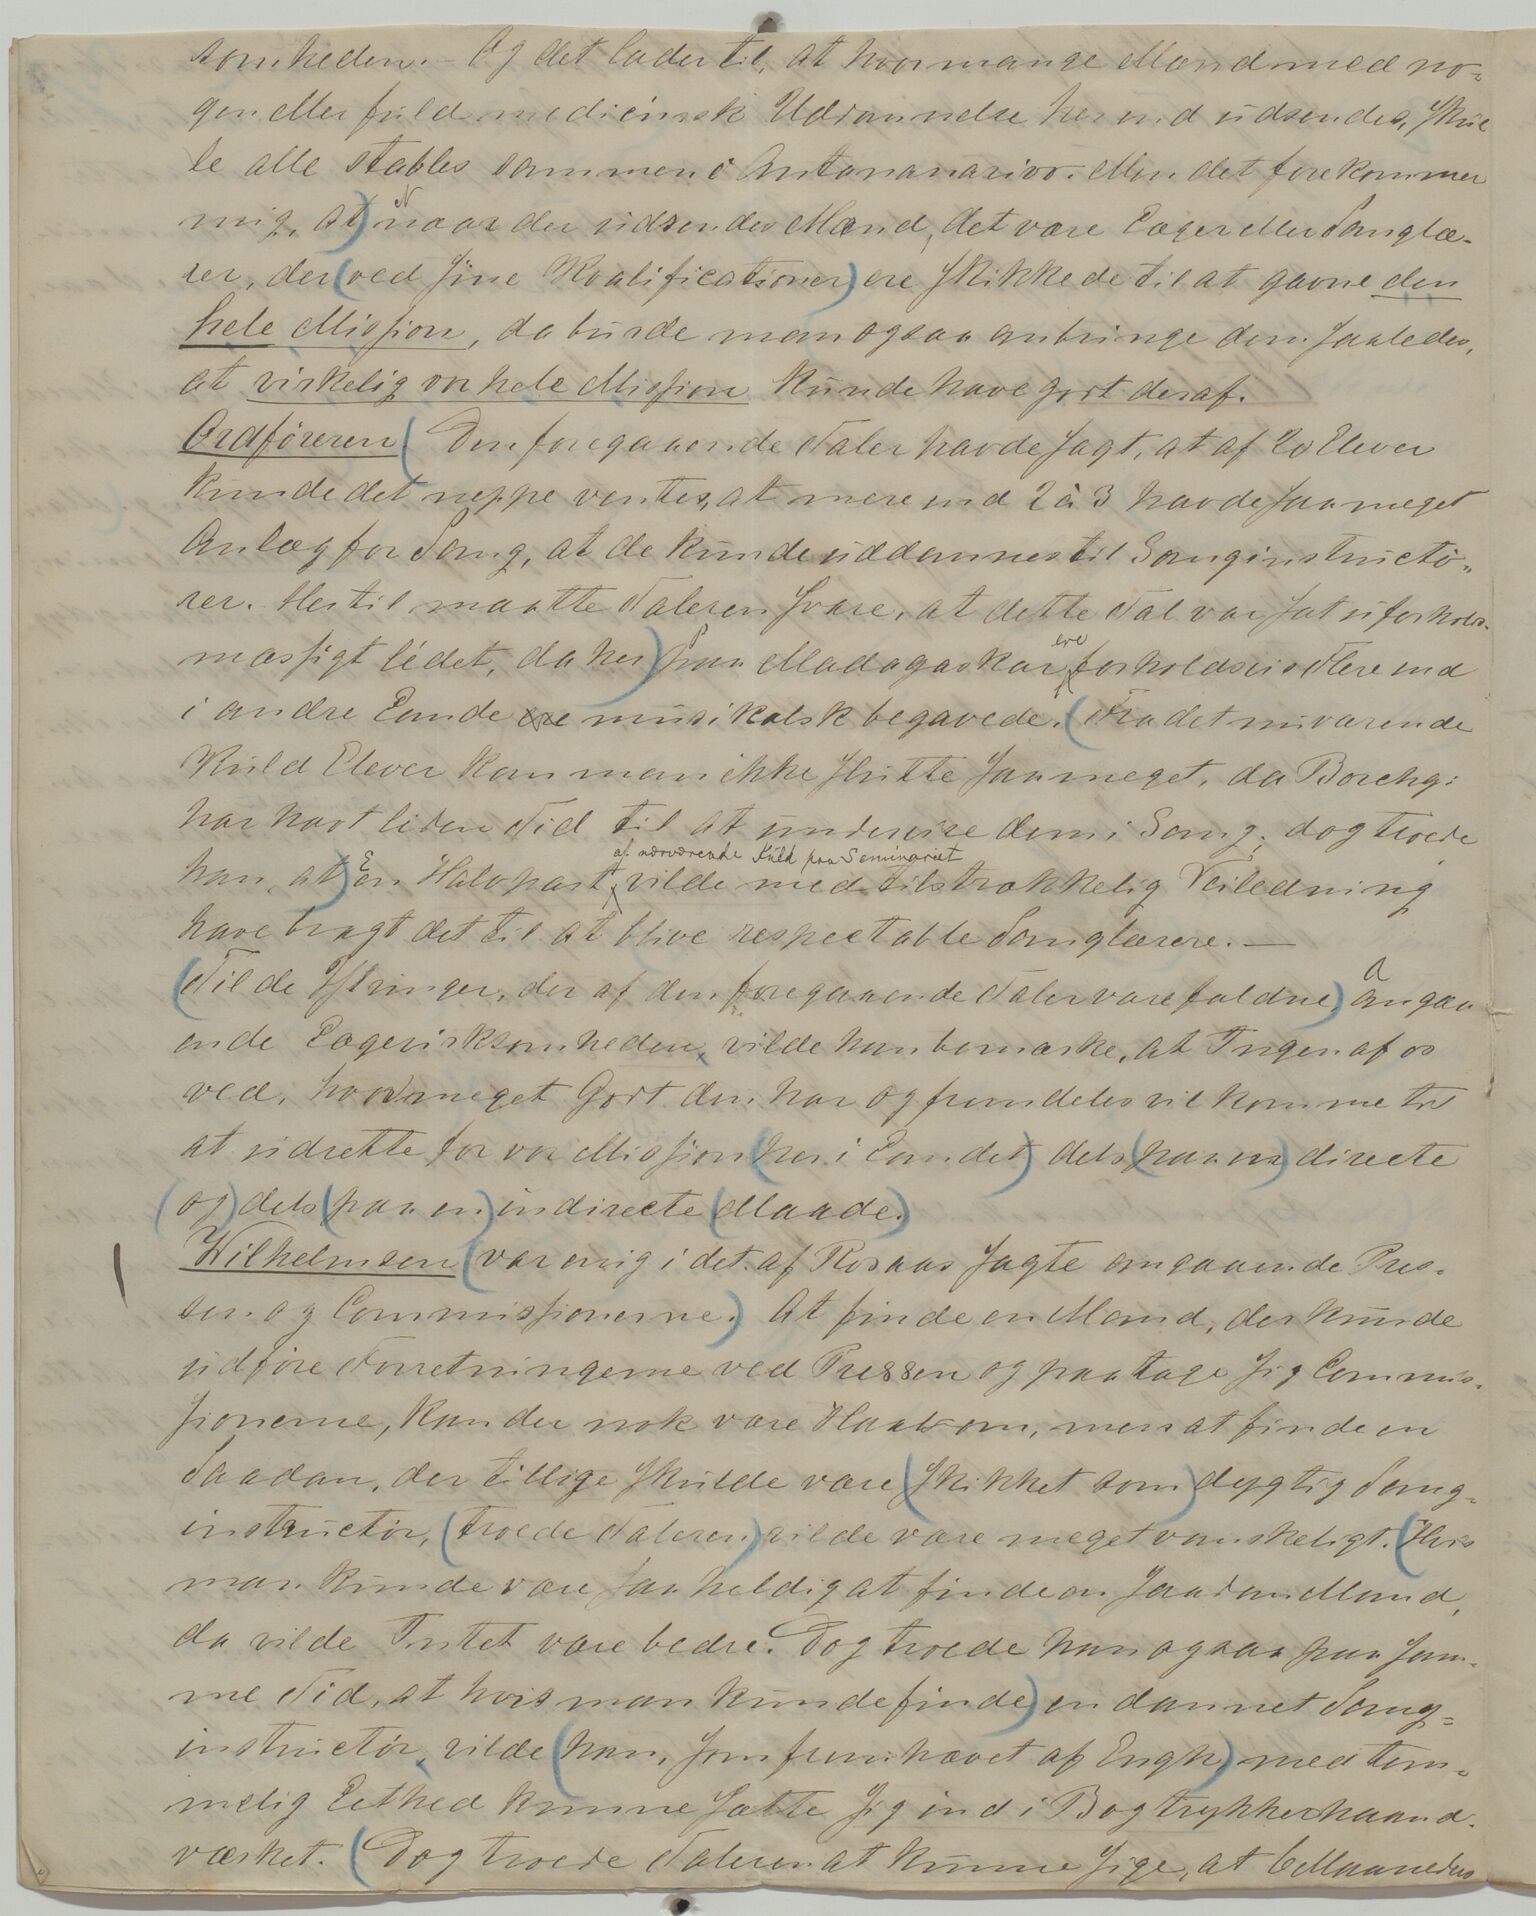 somheden. – Og det lader til, at hvor mange Mænd med no-
gen eller fuld medicinsk Uddannelse her ned udsendes, skul
le alle stables sammen i Antananarivo. Men det forekommer
mig, at) naar der udsendes Mænd, det være Læger eller Sanglæ-
rer, der (ved sine Kvalificationer) ere skikkede til at gavne den
hele Mission, da burde man ogsaa anbringe dem saaledes,
at virkelig vor hele Mission kunde have godt deraf.
Ordføreren (Den foregaaende Taler havde sagt, at af 20 Elever
kunde det neppe ventes, at mere end 2 à 3 havde saa meget
Anlæg for Sang, at de kunde uddannes til Sanginstructø-
rer. Hertil maatte Taleren svare, at dette Tal var sat uforholds-
mæssigt lidet, da her) paa Madagaskar ere forholdsvis Flere end
i andre Lande ere musikalsk begavede. (Fra det nuværende
Kuld Elever kan man ikke slutte saa meget, da Borchg:
har havt liden Tid til at undervise dem i Sang; dog troede
han, at) En Halvpart af nærværende Kuld paa Seminariet vilde med tilstrækkelig Veiledning
have bragt det til at blive respectable Sanglærere. —
(Til de Ytringer, der af den foregaaende Taler vare faldne) angaa
ende Lægevirksomheden, vilde han bemærke, at Ingen af os
ved, hvor meget Godt den har og fremdeles vil komme til
at udrette for vor Mission (her i Landet) dels (paa en) directe
(og) dels (paa en) indirecte (Maade.)
Wilhelmsen (var enig i det af Rosaas sagte angaaende Pres-
sen og Commissionerne.) At finde en Mand, der kunde
udføre Forretningerne ved Pressen og paatage sig Commis-
sionerne, kan der nok være Haab om, men at finde en
Saadan, der tillige skulde være (skikket som) dygtig Sang-
instructør, (troede Taleren) vilde være meget vanskeligt. (Hvis
man kunde være saa heldig at finde en saadan Mand,
da vilde Intet være bedre. Dog troede han ogsaa paa sam-
me Tid, at hvis man kunde finde) en dannet Sang-
instructør, vilde (han, som fremhævet af Engh,) med tem-
melig Lethed kunne sætte sig ind i Bogtrykkerhaand-
værket. (Dog troede Taleren at kunne sige, at 6 Maaneders